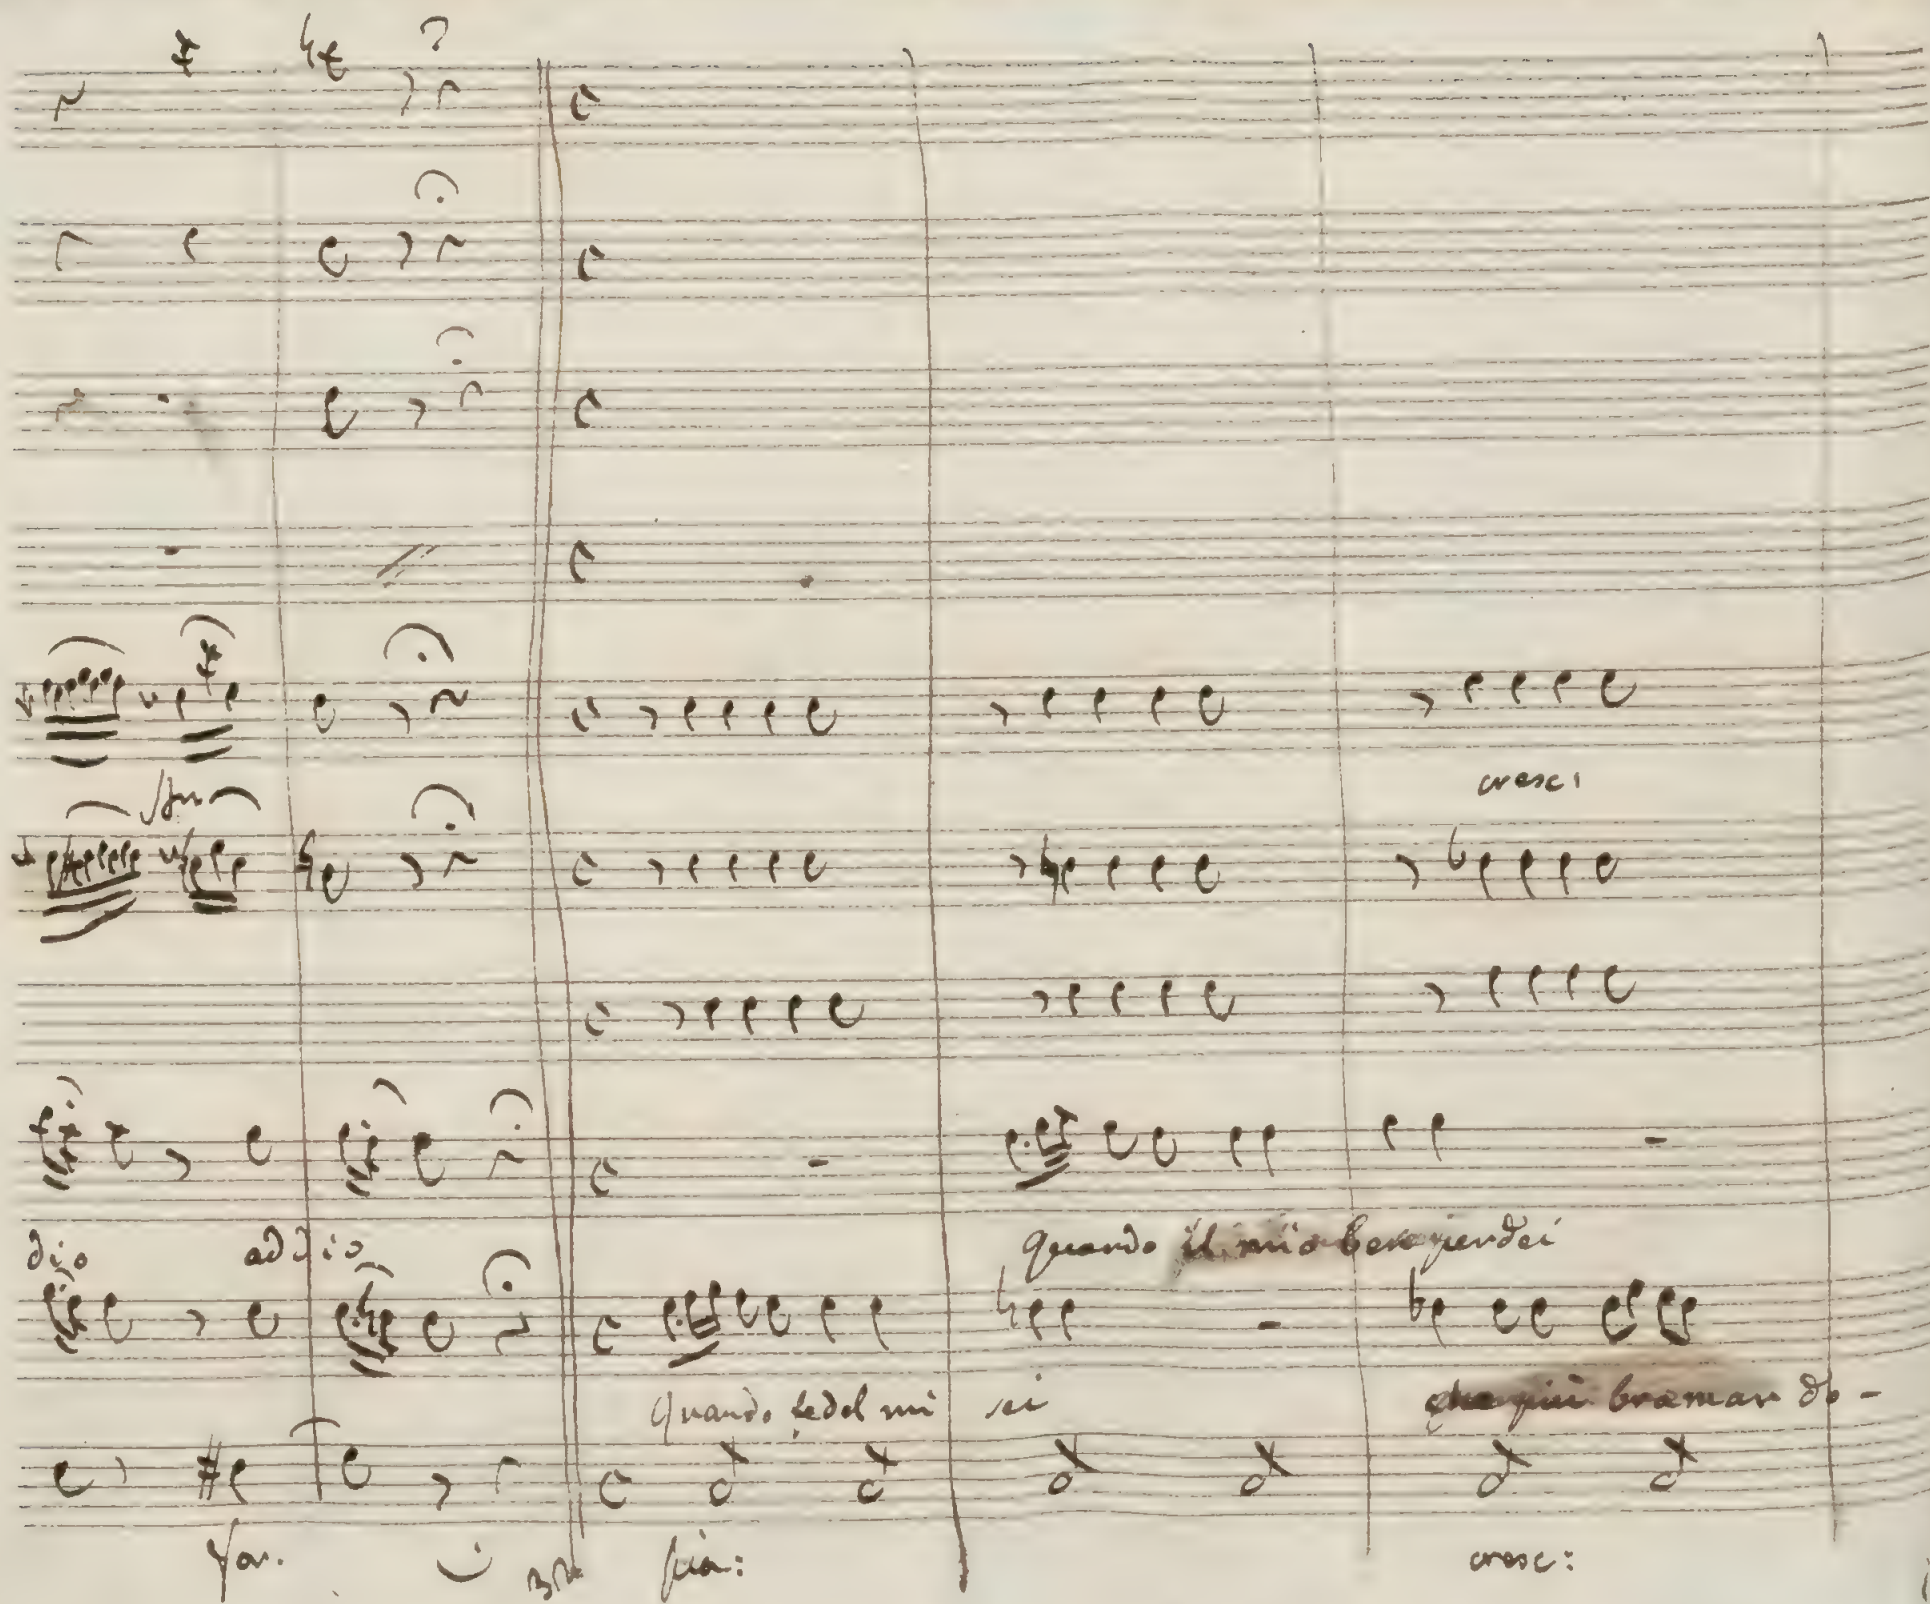 cresc:
dio addio
quando il mio bene perdei
quando fedel mi sei
che più bramar do-
for.
pia:
cresc: